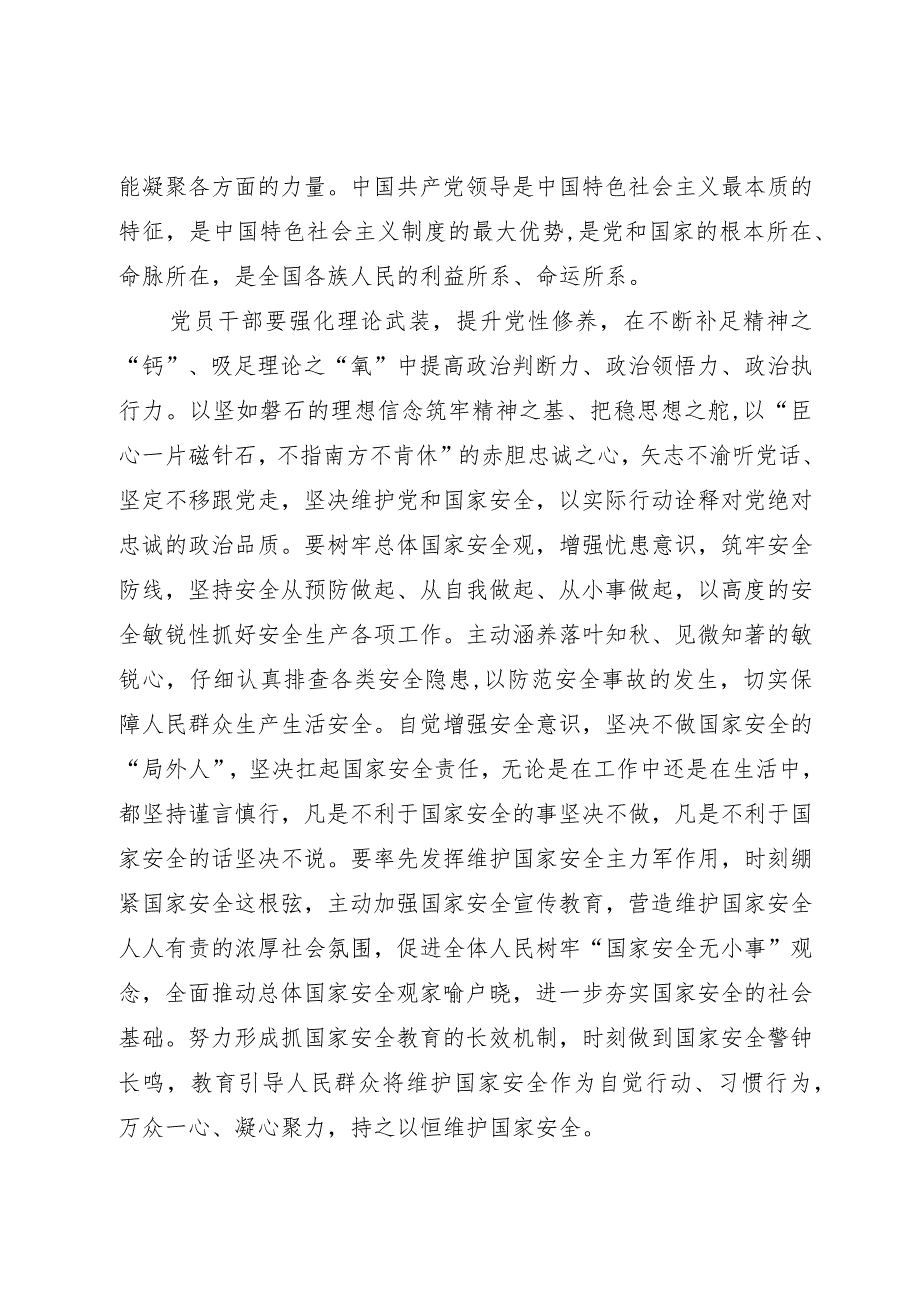 能凝聚各方面的力量。中国共产党领导是中国特色社会主义最本质的
特征，是中国特色社会主义制度的最大优势,是党和国家的根本所在、
命脉所在，是全国各族人民的利益所系、命运所系。
党员干部要强化理论武装，提升党性修养，在不断补足精神之
“钙”、吸足理论之“氧”中提高政治判断力、政治领悟力、政治执
行力。以坚如磐石的理想信念筑牢精神之基、把稳思想之舵,以“臣
心一片磁针石，不指南方不肯休”的赤胆忠诚之心，矢志不渝听党话、
坚定不移跟党走，坚决维护党和国家安全，以实际行动诠释对党绝对
忠诚的政治品质。要树牢总体国家安全观，增强忧患意识，筑牢安全
防线，坚持安全从预防做起、从自我做起、从小事做起，以高度的安
全敏锐性抓好安全生产各项工作。主动涵养落叶知秋、见微知著的敏
锐心，仔细认真排查各类安全隐患,以防范安全事故的发生，切实保
障人民群众生产生活安全。自觉增强安全意识，坚决不做国家安全的
“局外人”，坚决扛起国家安全责任，无论是在工作中还是在生活中，
都坚持谨言慎行，凡是不利于国家安全的事坚决不做，凡是不利于国
家安全的话坚决不说。要率先发挥维护国家安全主力军作用，时刻绷
紧国家安全这根弦，主动加强国家安全宣传教育，营造维护国家安全
人人有责的浓厚社会氛围，促进全体人民树牢“国家安全无小事”观
念，全面推动总体国家安全观家喻户晓，进一步夯实国家安全的社会
基础。努力形成抓国家安全教育的长效机制，时刻做到国家安全警钟
长鸣，教育引导人民群众将维护国家安全作为自觉行动、习惯行为，
万众一心、凝心聚力，持之以恒维护国家安全。